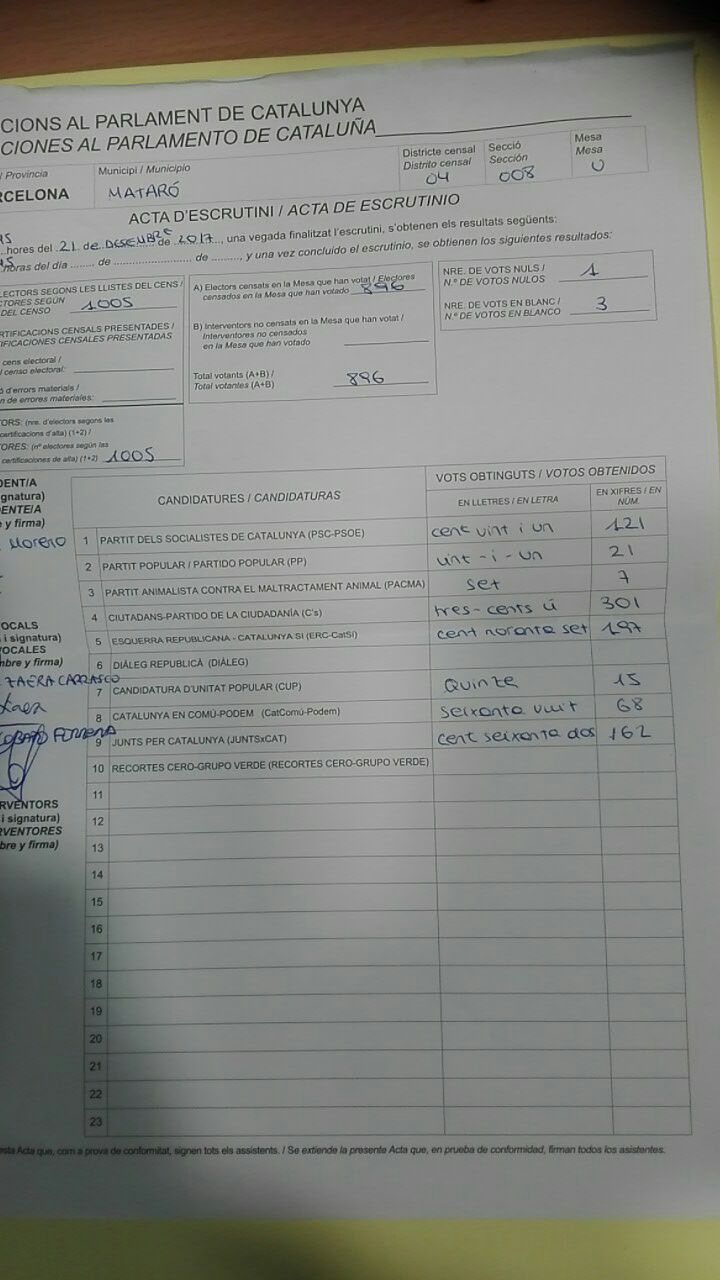 CIONS AL PARLAMENT DE CATALUNYA
CIONES AL PARLAMENTO DE CATALUÑA
/ Provincia
RCELONA
Municipi / Municipio
MATARÓ
Districte censal
Distrito censal
04
Secció
Sección
008
Mesa
Mesa
U
ACTA D'ESCRUTINI / ACTA DE ESCRUTINIO
hores del 21 de DESEMBRE de 2017, una vegada finalitzat l'escrutini, s'obtenen els resultats següents:
horas del día ........ de ........................ de ........., y una vez concluido el escrutinio, se obtienen los siguientes resultados:
LECTORS SEGONS LES LLISTES DEL CENS /
CTORES SEGÚN
DEL CENSO 1005
RTIFICACIONS CENSALS PRESENTADES /
IFICACIONES CENSALES PRESENTADAS
cens electoral /
l censo electoral:
ó d'errors materials /
n de errores materiales:
TORS: (nre. d'electors segons les
certificacions d'alta) (1+2) /
TORES: (nº electores según las
certificaciones de alta) (1+2) 1005
A) Electors censats en la Mesa que han votat / Electores
censados en la Mesa que han votado 896
B) Interventors no censats en la Mesa que han votat /
Interventores no censados
en la Mesa que han votado
Total votants (A+B) /
Total votantes (A+B) 896
NRE. DE VOTS NULS /
N.º DE VOTOS NULOS 1
NRE. DE VOTS EN BLANC /
N.º DE VOTOS EN BLANCO 3
DENT/A
ignatura)
DENTE/A
e y firma)
Moreno
VOCALS
i signatura)
VOCALES
mbre y firma)
ZAERA CARRASCO
ERVENTORS
i signatura)
RVENTORES
bre y firma)
CANDIDATURES / CANDIDATURAS
VOTS OBTINGUTS / VOTOS OBTENIDOS
EN LLETRES / EN LETRA
EN XIFRES / EN NÚM.
1 PARTIT DELS SOCIALISTES DE CATALUNYA (PSC-PSOE) cent vint i un 121
2 PARTIT POPULAR / PARTIDO POPULAR (PP) vint-i-un 21
3 PARTIT ANIMALISTA CONTRA EL MALTRACTAMENT ANIMAL (PACMA) set 7
4 CIUTADANS-PARTIDO DE LA CIUDADANÍA (C's) tres-cents ú 301
5 ESQUERRA REPUBLICANA - CATALUNYA SÍ (ERC-CatSí) cent noranta set 197
6 DIÀLEG REPUBLICÀ (DIÀLEG)
7 CANDIDATURA D'UNITAT POPULAR (CUP) Quinze 15
8 CATALUNYA EN COMÚ-PODEM (CatComú-Podem) seixanta vuit 68
9 JUNTS PER CATALUNYA (JUNTSxCAT) cent seixanta dos 162
10 RECORTES CERO-GRUPO VERDE (RECORTES CERO-GRUPO VERDE)
11
12
13
14
15
16
17
18
19
20
21
22
23
esta Acta que, com a prova de conformitat, signen tots els assistents. / Se extiende la presente Acta que, en prueba de conformidad, firman todos los asistentes.